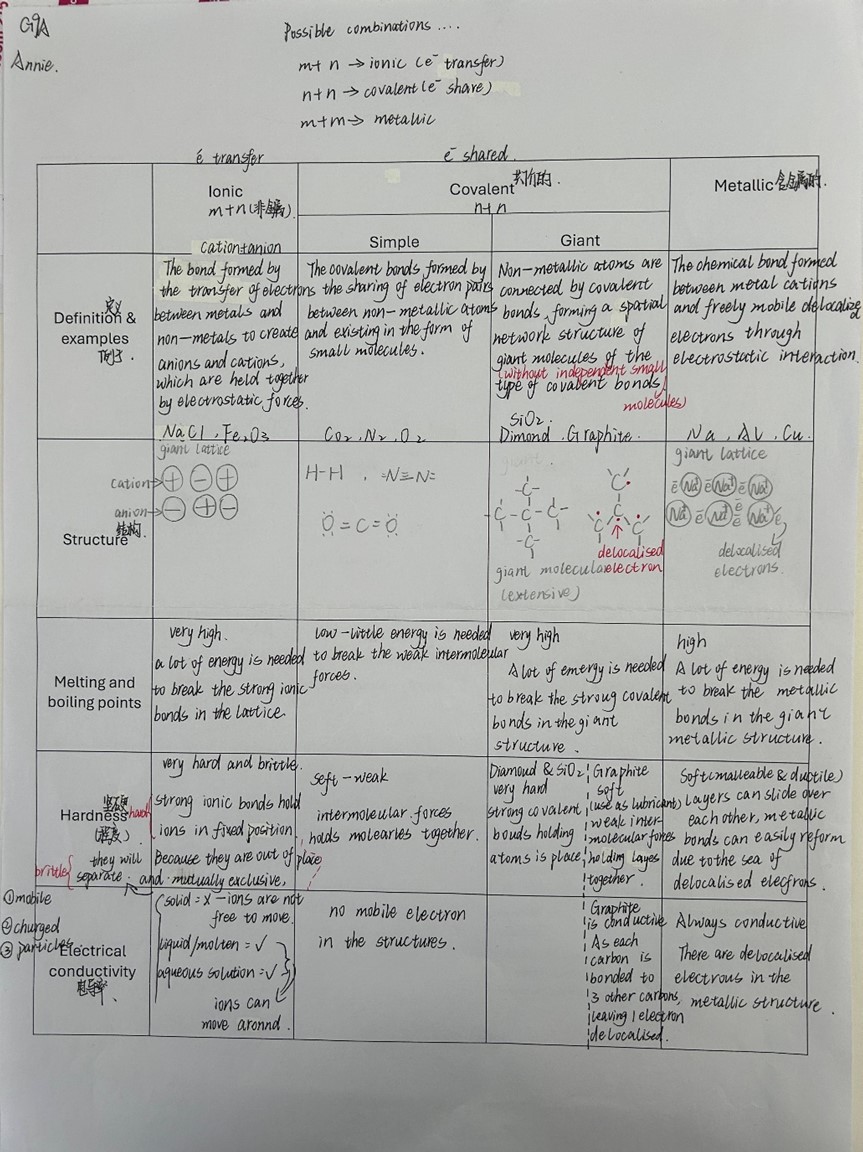 G9A
Annie.
Possible combinations ....
m+n → ionic (e⁻ transfer)
n+n → covalent (e⁻ share)
m+m → metallic
e⁻ transfer
e⁻ shared.
Ionic
m+n (非金属).
cation+anion
Covalent 共价的.
n+n
Simple
Giant
Metallic 含金属的.
Definition & 定义
examples
例子.
The bond formed by
the transfer of electrons
between metals and
non-metals to create
anions and cations,
which are held together
by electrostatic forces.
NaCl, Fe₂O₃
The covalent bonds formed by
the sharing of electron pairs
between non-metallic atoms
and existing in the form of
small molecules.
Co₂, N₂, O₂
Non-metallic atoms are
connected by covalent
bonds, forming a spatial
network structure of
giant molecules of the
(without independent small
type of covalent bonds
molecules)
SiO₂.
Dimond, Graphite.
The chemical bond formed
between metal cations
and freely mobile delocalized
electrons through
electrostatic interaction.
Na, Al, Cu.
Structure 结构.
giant lattice
cation→ + − +
anion→ − + −
H-H , =N≡N=
Ö=C=Ö
giant
-C-
-C-C-C-
-C-
giant molecular
(extensive)
C
C
C C C
delocalised
electron
giant lattice
e⁻ Na⁺ e⁻ Na⁺ e⁻ Na⁺
Na⁺ e⁻ Na⁺ e⁻ e⁻ Na⁺ e⁻
delocalised
electrons.
Melting and
boiling points
very high.
a lot of energy is needed
to break the strong ionic
bonds in the lattice.
low-little energy is needed
to break the weak intermolecular
forces.
very high
A lot of emergy is needed
to break the stroug covalent
bonds in the giant
structure.
high
A lot of energy is needed
to break the metallic
bonds in the giant
metallic structure.
坚硬
Hardness
(硬度).
hard
very hard and brittle.
strong ionic bonds hold
ions in fixed position
brittle
they will Because they are out of place
separate. and mutually exclusive,
seft-weak
intermolecular forces
holds molearles together.
Diamoud & SiO₂
very hard
strong covalent
bouds holding
atoms is place,
Graphite
soft
(use as lubricant)
weak inter-
molecular forces
holding layes
together.
Soft(malleable & ductile)
Layers can slide over
each other, metallic
bonds can easily reform
due to the sea of
delocalised elecfrons.
①mobile
②churged
③particles
Electrical
conductivity
导率.
solid = x - ions are not
free to move.
liquid/molten = √
aqueous solution = √
ions can
move aronnd.
no mobile electron
in the structures.
Graphite
is conductive
As each
carbon is
bonded to
3 other carbons,
leaving 1 electron
delocalised.
Always conductive
There are delocalised
electrous in the
metallic structure.